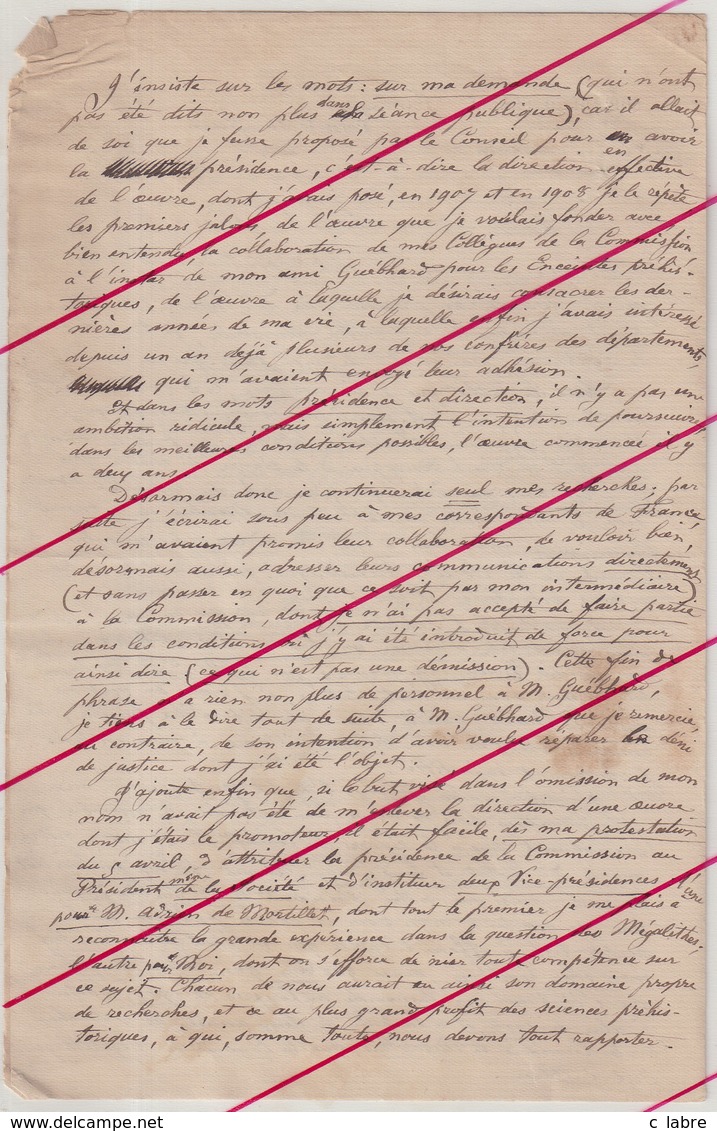 J'insiste sur les mots : sur ma demande (qui n'ont
pas été dits non plus dans la séance publique), car il allait
de soi que je fusse proposé par le Conseil pour en avoir
la présidence, c'est-à-dire la direction en effective
de l'œuvre, dont j'avais posé, en 1907 et en 1908 je le répète
les premiers jalons, de l'œuvre que je voulais fonder avec
bien entendu la collaboration de mes Collègues de la Commission
à l'instar de mon ami Guébhard pour les Enceintes préhis-
toriques, de l'œuvre à laquelle je désirais consacrer les der-
nières années de ma vie, à laquelle enfin j'avais intéressé
depuis un an déjà plusieurs de nos confrères des départements,
qui m'avaient envoyé leur adhésion.
Et dans les mots présidence et direction, il n'y a pas une
ambition ridicule, mais simplement l'intention de poursuivre
dans les meilleures conditions possibles, l'œuvre commencée il y
a deux ans.
Désormais donc je continuerai seul mes recherches ; par
suite j'écrirai sous peu à mes correspondants de France
qui m'avaient promis leur collaboration, de vouloir bien,
désormais aussi, adresser leurs communications directement
(et sans passer en quoi que ce soit par mon intermédiaire)
à la Commission, dont je n'ai pas accepté de faire partie
dans les conditions où j'y ai été introduit de force pour
ainsi dire (ce qui n'est pas une démission). Cette fin de
phrase n'a rien non plus de personnel à M. Guébhard,
je tiens à le dire tout de suite, à M. Guébhard que je remercie,
au contraire, de son intention d'avoir voulu réparer le déni
de justice dont j'ai été l'objet.
J'ajoute enfin que, si le but visé dans l'omission de mon
nom n'avait pas été de m'enlever la direction d'une œuvre
dont j'étais le promoteur, il était facile, dès ma protestation
du 5 avril, d'attribuer la présidence de la Commission au
Président même de la Société et d'instituer deux Vice-présidences, l'une
pour M. Adrien de Mortillet, dont tout le premier je me plais à
reconnaître la grande expérience dans la question des Mégalithes ;
l'autre pour Moi, dont on s'efforce de nier toute compétence sur
ce sujet. Chacun de nous aurait eu ainsi son domaine propre
de recherches, et ce au plus grand profit des sciences préhis-
toriques, à qui, somme toute, nous devons tout rapporter.
c labre